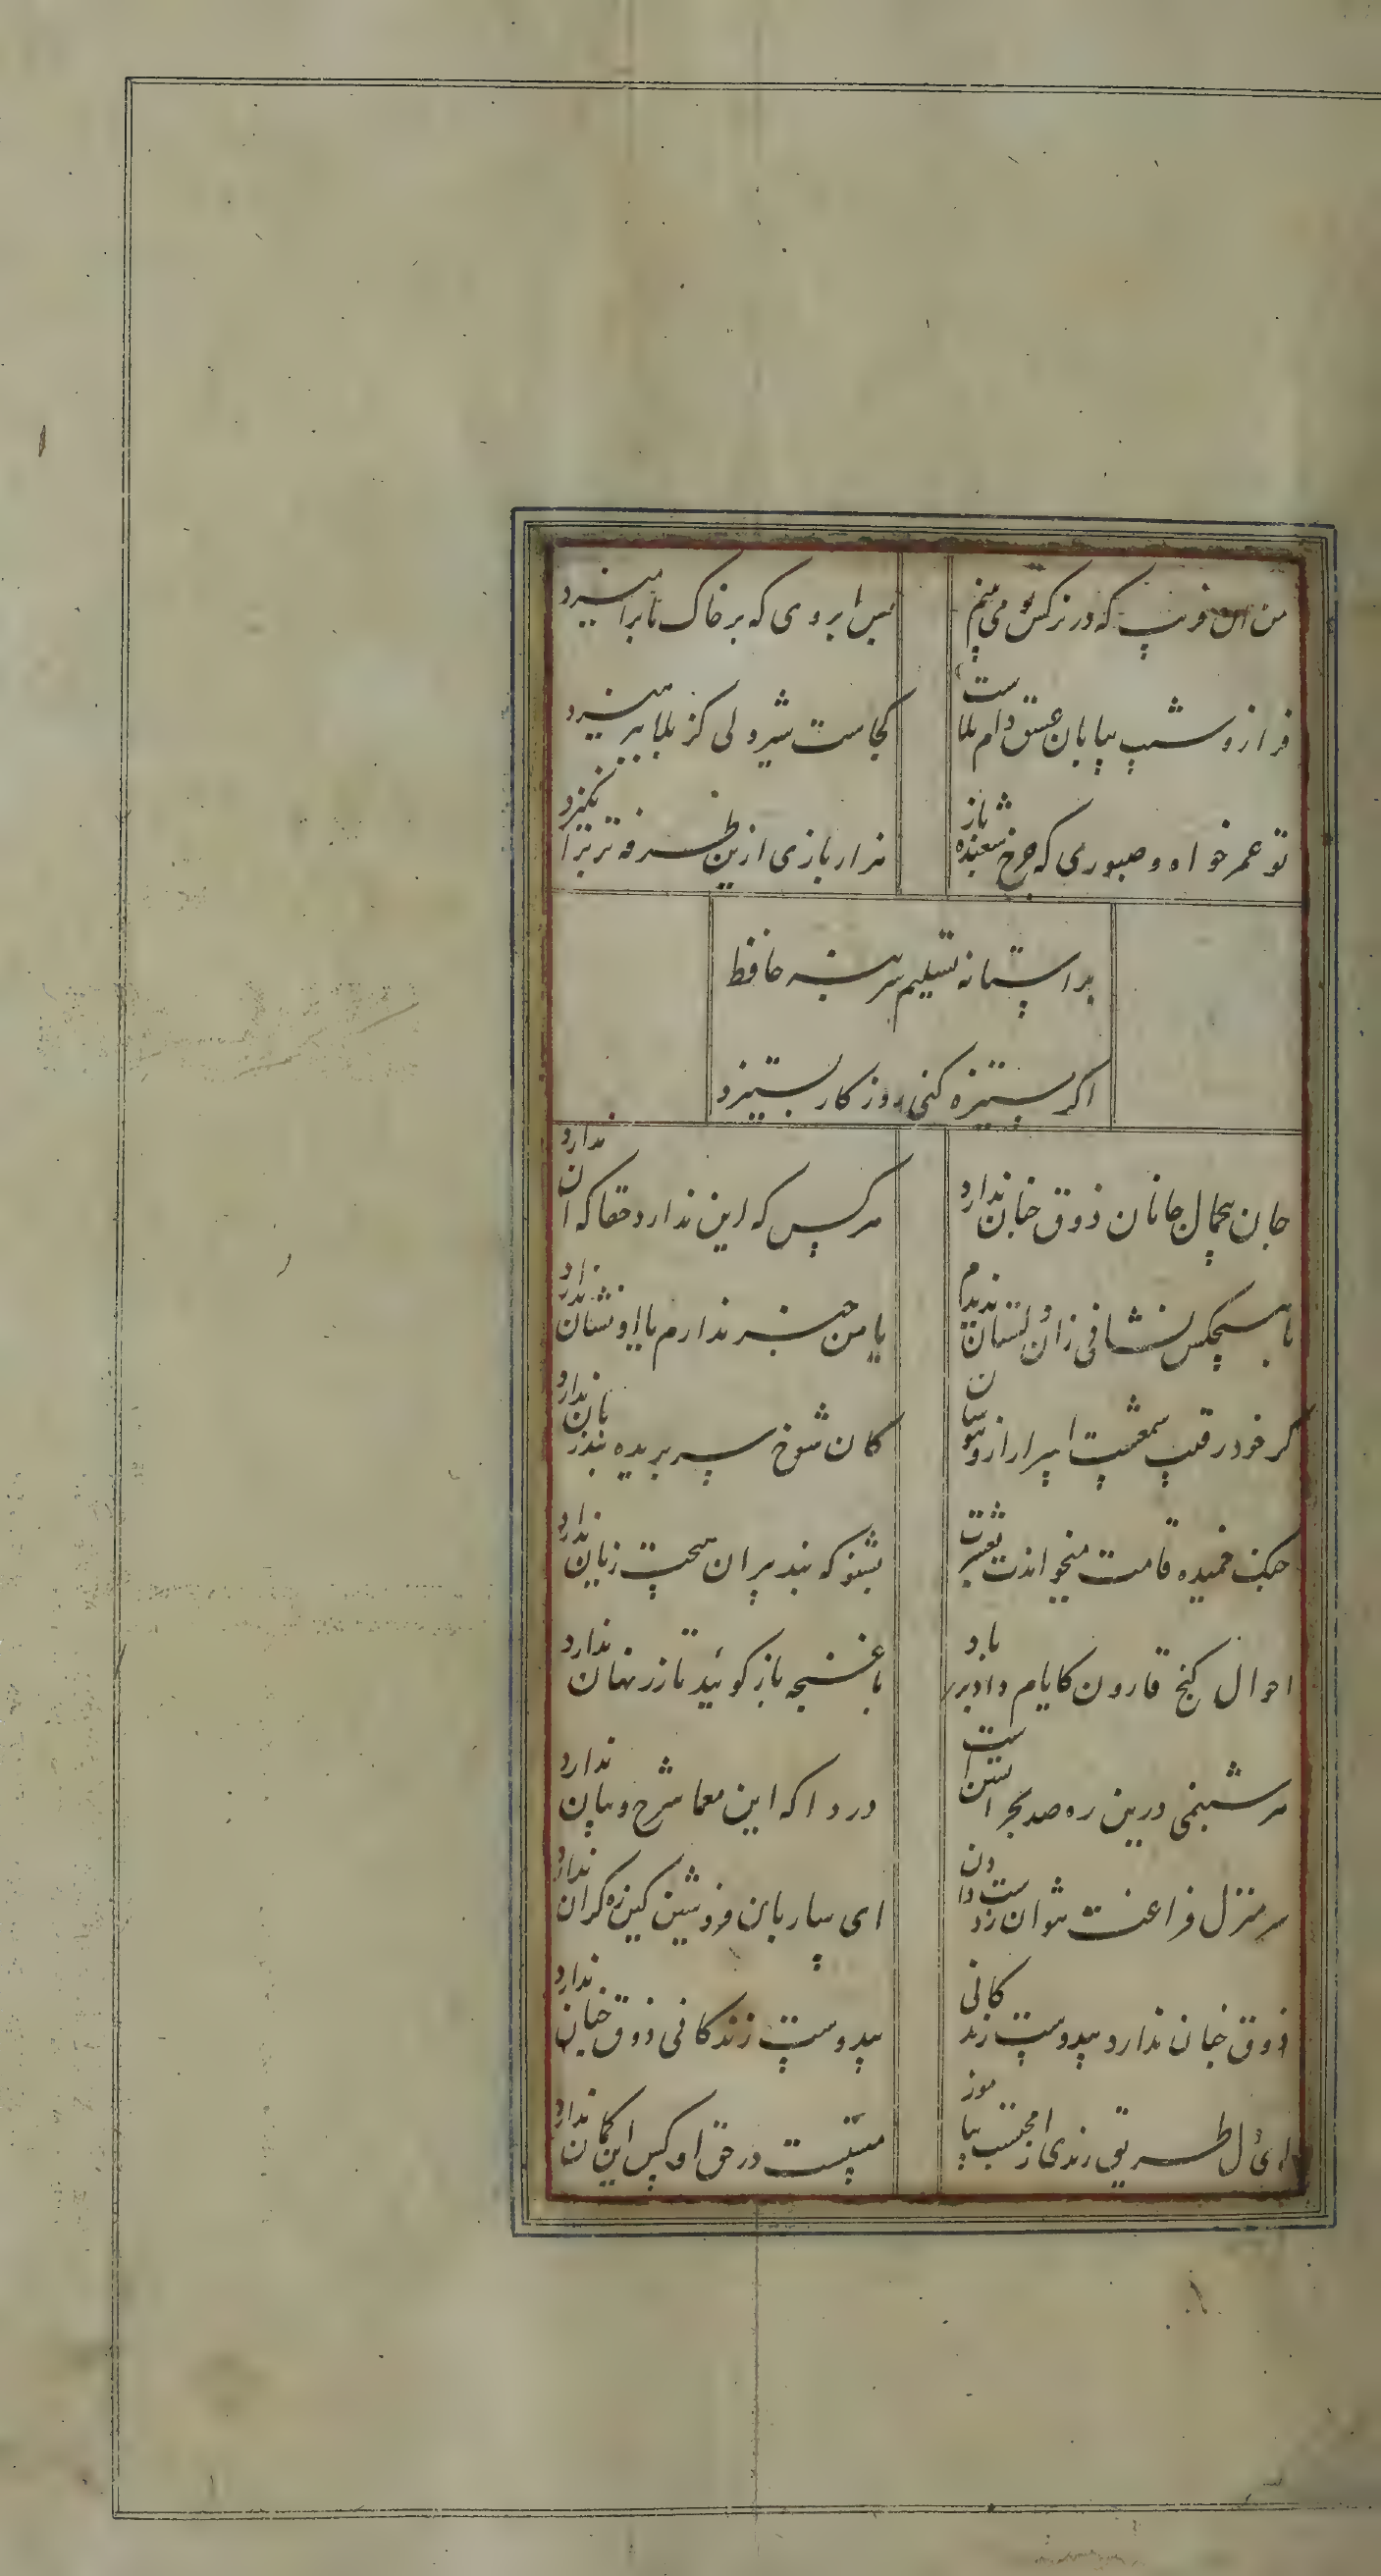 من این فریب که در نرکس تو می بینم
بس ابروی که بر خاک ما برامیزد
فراز و شیب بیابان عشق دام بلاست
کجاست شیردلی کز بلا نپرهیزد
تو عمر خواه و صبوری که چرخ شعبده باز
هزار بازی ازین طرفه تر برانکیزد
بر استانه تسلیم سر بنه حافظ
اکر ستیزه کنی روزکار بستیزد
جان بی جمال جانان ذوق جهان ندارد
هر کس که این ندارد حقا که ان ندارد
با هیچکس نشانی زان دلستان ندیدم
یا من خبر ندارم یا او نشان ندارد
کر خود رقیب شمعست اسرار ازو بپوشان
کان شوخ سر بریده بند زبان ندارد
چنک خمیده قامت میخواندت بعشرت
بشنو که پند پیران هیچت زیان ندارد
احوال کنج قارون کایام داد بر باد
با غنچه باز کوئید تا زر نهان ندارد
هر شبنمی درین ره صد بحر اتشین است
دردا که این معما شرح و بیان ندارد
سر منزل فراغت نتوان ز دست دادن
ای ساربان فروکش کین ره کران ندارد
ذوق جهان ندارد بیدوست زندکانی
بیدوست زندکانی ذوق جهان ندارد
ای دل طریق رندی از محتسب بیاموز
مستست و در حق او کس این کمان ندارد